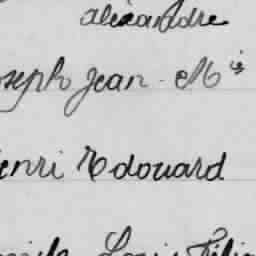 alexandre
oseph Jean Mis
enri Edouard
Louis